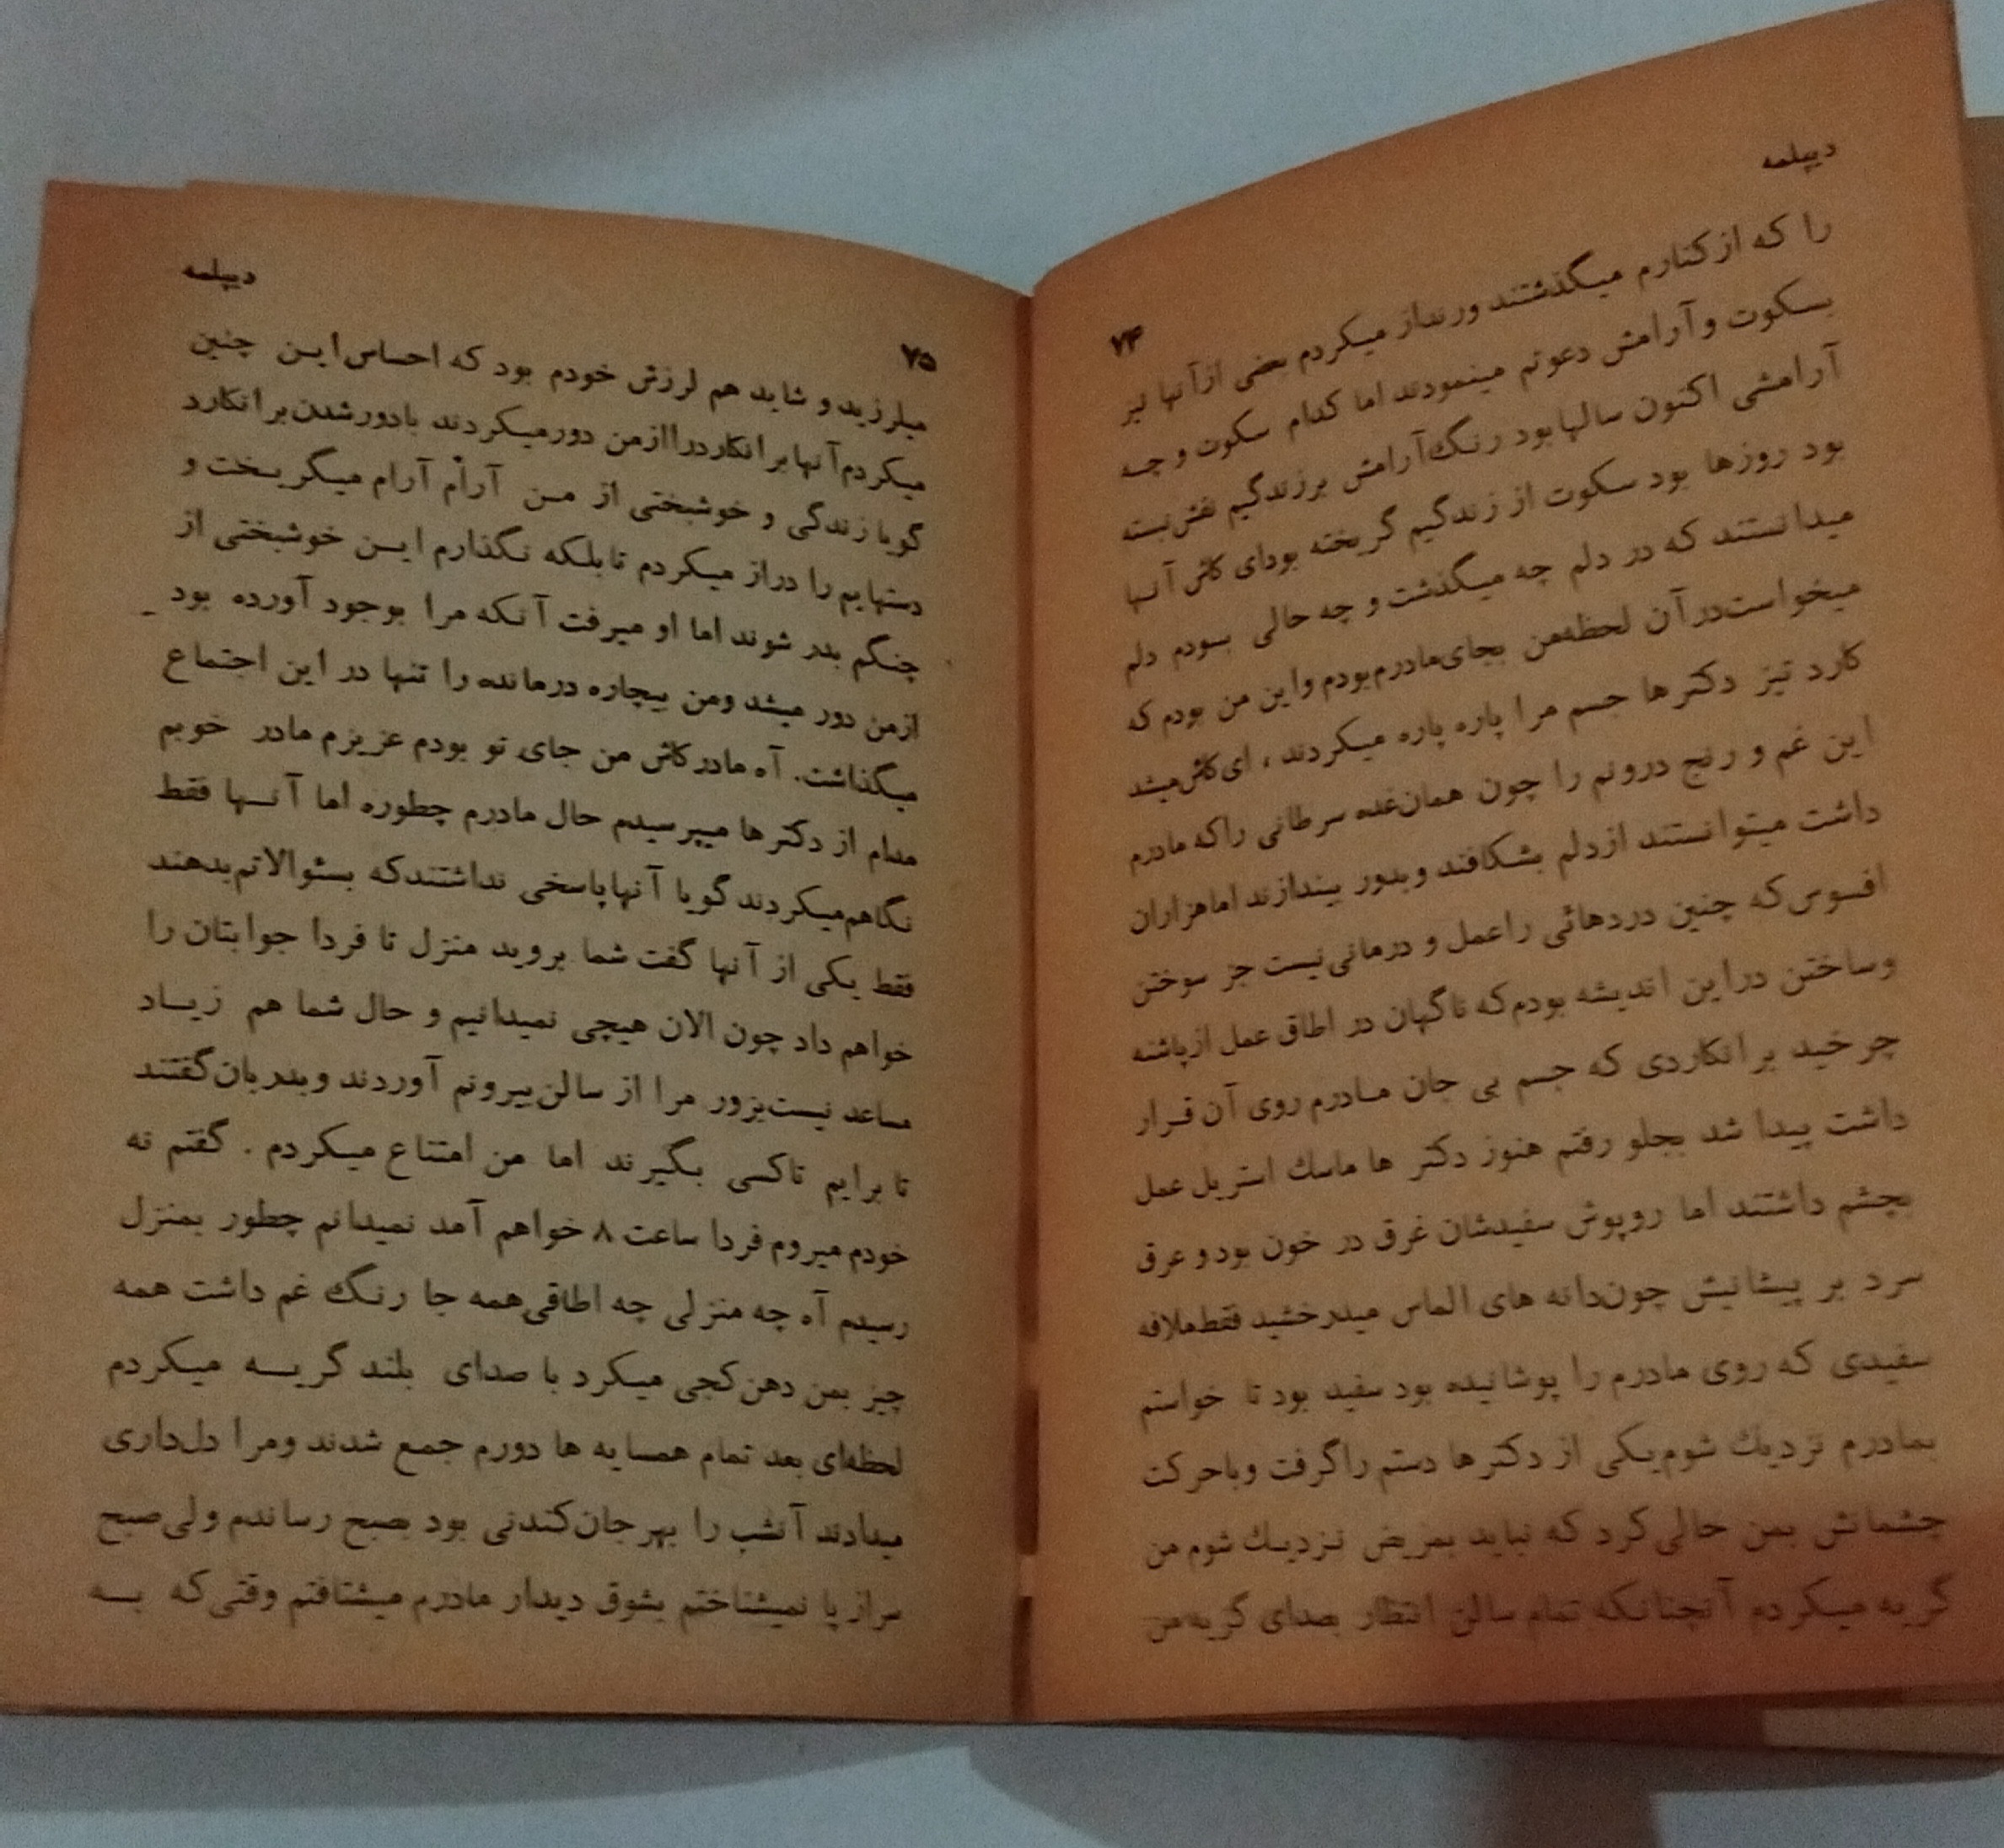 دیپلمه
۷۴
را که از کنارم میگذشتند ورنداز میکردم بعضی از آنها نیز
بسکوت و آرامش دعوتم مینمودند اما کدام سکوت و چه
آرامشی اکنون سالها بود رنگ آرامش برزندگیم نقش نبسته
بود روزها بود سکوت از زندگیم گریخته بود ای کاش آنها
میدانستند که در دلم چه میگذشت و چه حالی بودم دلم
میخواست در آن لحظه من بجای مادرم بودم و این من بودم که
کارد تیز دکترها جسم مرا پاره پاره میکردند ، ای کاش میشد
این غم و رنج درونم را چون همان غده سرطانی را که مادرم
داشت میتوانستند از دلم بشکافند و بدور بیندازند اما هزاران
افسوس که چنین دردهائی را عمل و درمانی نیست جز سوختن
وساختن در این اندیشه بودم که ناگهان در اطاق عمل از پاشنه
چرخید برانکاردی که جسم بی جان مادرم روی آن قرار
داشت پیدا شد بجلو رفتم هنوز دکتر ها ماسك استریل عمل
بچشم داشتند اما روپوش سفیدشان غرق در خون بود و عرق
سرد بر پیشانیش چون دانه های الماس میدرخشید فقط ملافه
سفیدی که روی مادرم را پوشانیده بود سفید بود تا خواستم
بمادرم نزدیك شوم یکی از دکترها دستم را گرفت و باحرکت
چشمانش بمن حالی کرد که نباید بمریض نزدیك شوم من
گریه میکردم آنچنانکه تمام سالن انتظار بصدای گریه من
۷۵
دیپلمه
میلرزید و شاید هم لرزش خودم بود که احساس این چنین
میکردم آنها برانکارد را از من دور میکردند بادور شدن برانکارد
گویا زندگی و خوشبختی از من آرام آرام میگریخت و
دستهایم را دراز میکردم تا بلکه نگذارم این خوشبختی از
چنگم بدر شوند اما او میرفت آنکه مرا بوجود آورده بود
ازمن دور میشد ومن بیچاره درمانده را تنها در این اجتماع
میگذاشت. آه مادر کاش من جای تو بودم عزیزم مادر خوبم
مدام از دکترها میپرسیدم حال مادرم چطوره اما آنها فقط
نگاهم میکردند گویا آنها پاسخی نداشتند که بسئوالاتم بدهند
فقط یکی از آنها گفت شما بروید منزل تا فردا جوابتان را
خواهم داد چون الان هیچی نمیدانیم و حال شما هم زیاد
مساعد نیست بزور مرا از سالن بیرونم آوردند و بدربان گفتند
تا برایم تاکسی بگیرند اما من امتناع میکردم . گفتم نه
خودم میروم فردا ساعت ۸ خواهم آمد نمیدانم چطور بمنزل
رسیدم آه چه منزلی چه اطاقی همه جا رنگ غم داشت همه
چیز بمن دهن کجی میکرد با صدای بلند گریه میکردم
لحظه‌ای بعد تمام همسایه ها دورم جمع شدند ومرا دل‌داری
میدادند آنشب را بهر جان کندنی بود بصبح رساندم ولی صبح
سراز پا نمیشناختم بشوق دیدار مادرم میشتافتم وقتی که به